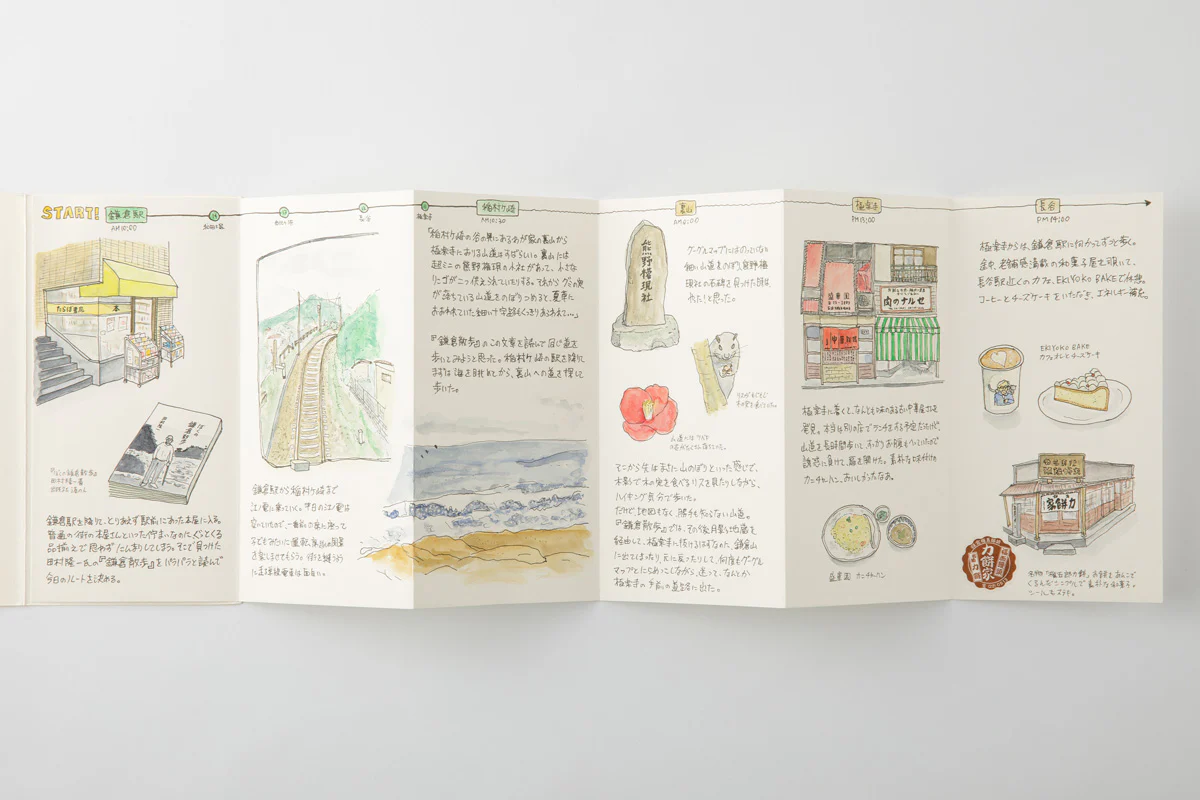 START!
鎌倉駅
AM10:00
和田塚
たらば書房
本
ぼくの鎌倉散歩
田村隆一
鎌倉駅を降りて、とりあえず駅前にあった本屋に入る。
普通の街の本屋さんといった佇まいなのにぐっとくる
品揃えで思わずにんまりしてしまう。そこで見つけた
田村隆一氏の『鎌倉散歩』をパラパラと読んで
今日のルートを決める。
由比ヶ浜
長谷
鎌倉駅から稲村ヶ崎まで
江ノ電に乗っていく。平日の江ノ電は
空いているので、一番前の席に座って
子ども
に並ぶ
極楽寺
稲村ヶ崎
AM10:30
「稲村ヶ崎の谷の奥にあるわが家の裏山から
極楽寺におりる山道はすばらしい。裏山には
超ミニの熊野権現の小社があって、小さな
リンゴが二つ供えられていたりする。それから
が落ちている山道をのぼりつめると、夏草に
おおわれていた細い十字路もくっきりあらわれて…」
『鎌倉散歩』のこの文章を読んで同じ道を
歩いてみようと思った。稲村ヶ崎の駅を降りて
まずは海を眺めてから、裏山への道を探して
歩いた。
裏山
AM11:00
熊野権現社
グーグルマップにはのっていない
細い山道をのぼり、熊野権
現社の石碑を見つけた時は
やったりと思った。
山道には
そこから先はまさに山のぼりといった感じで、
木影で木の実を食べるリスを見たりしながら、
ハイキング気分で歩いた。
だけど地図もなく、勝手も知らない山道。
『鎌倉散歩』では、その後月影地蔵を
経由して、極楽寺に抜けるはずなのに、鎌倉山
に出てしまったり、元に戻ったりして、何度もグーグル
マップとにらめっこしながら、迷って、なんとか
極楽寺の手前の
に出た。
極楽寺
PM13:00
盛華園
肉のナルセ
中華料理
極楽寺に着くと、なんとも味のある古い中華屋さんを
発見。本当は別の店でランチをする予定だったけど、
山道を長時間歩いて、すっかりお腹もへっていたので
誘惑に負けて、扉を開けた。素朴な味付けの
カニチャーハン、おいしかったなあ。
盛華園 カニチャーハン
長谷
PM14:00
極楽寺からは、鎌倉駅に向かってずっと歩く。
途中、老舗感満載の和菓子屋を覗いて、
長谷駅近くのカフェ、EKIYOKO BAKEで休憩。
コーヒーとチーズケーキをいただき、エネルギー補充。
EKIYOKO BAKE
カフェラテとチーズケーキ
力餅家
力餅家
名物「権五郎力餅」お餅をあんこで
くるんだシンプルで素朴な和菓子。
シールもステキ。